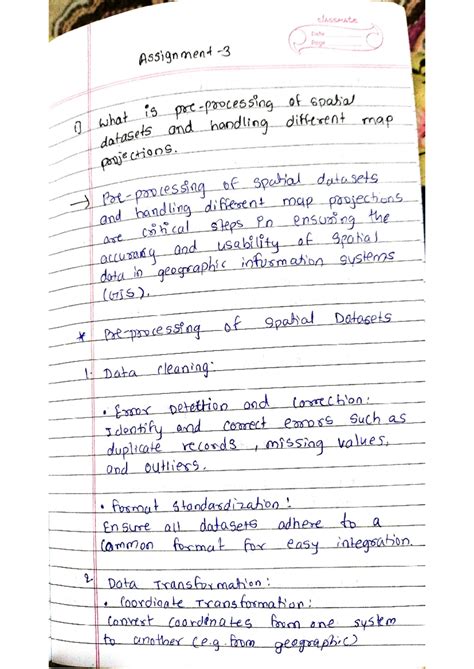 classmate
Date
Page
Assignment-3
1) What is pre-processing of spatial
datasets and handling different map
projections.
→ Pre-processing of spatial datasets
and handling different map projections
are critical steps in ensuring the
accuracy and usability of spatial
data in geographic information systems
(GIS).
* Pre-processing of Spatial Datasets
1. Data cleaning:
• Error Detettion and correction:
Identify and correct errors such as
duplicate records, missing values,
and outliers.
• Format standardization:
Ensure all datasets adhere to a
common format for easy integration.
2 Data Transformation:
• Coordinate Transformation:
Convert coordinates from one system
to another (e.g from geographic)